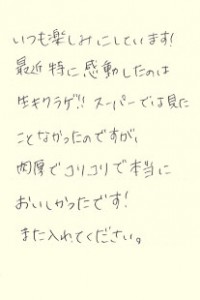 いつも楽しみにしています!
最近特に感動したのは
生キクラゲ!! スーパーでは見た
ことなかったのですが、
肉厚でコリコリで本当に
おいしかったです!
また入れてください。